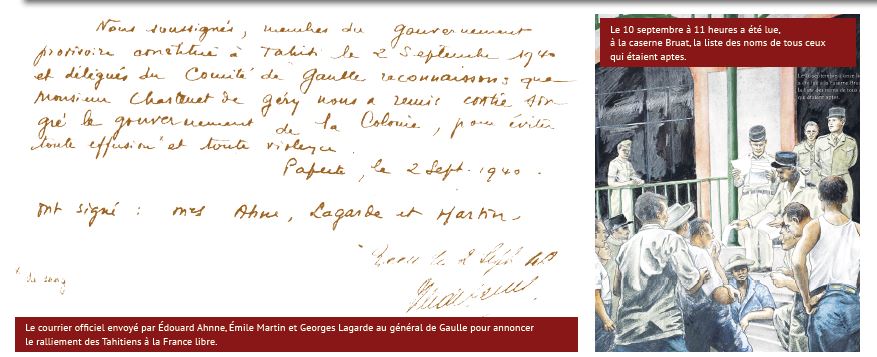 Nous soussignés, membres du gouvernement
provisoire constitué à Tahiti le 2 Septembre 1940
et délégués du Comité de Gaulle reconnaissons que
Monsieur Chastenet de Géry nous a remis contre son
gré le gouvernement de la Colonie, pour éviter
toute effusion et toute violence.
Papeete, le 2 Sept. 1940.
Ont signé : MMes Ahnne, Lagarde et Martin.
le 2 Sept 40
du sang
Le courrier officiel envoyé par Édouard Ahnne, Émile Martin et Georges Lagarde au général de Gaulle pour annoncer
le ralliement des Tahitiens à la France libre.
Le 10 septembre à 11 heures a été lue,
à la caserne Bruat, la liste des noms de tous ceux
qui étaient aptes.
Le 10 septembre à 11 heures
a été lue à la caserne Bruat,
la liste des noms de tous
qui étaient aptes.